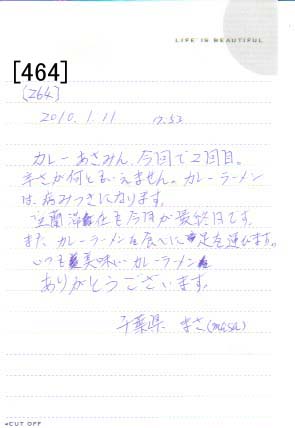 LIFE IS BEAUTIFUL
[464]
(264)
2010.1.11 17:52
カレーあさみん、今回で2回目。
辛さが何とも言えません。カレーラーメン
は、病みつきになります。
室蘭滞在も今日が最終日です。
また カレーラーメンを食べに足を運びます。
いつも美味しいカレーラーメン
ありがとうございます。
千葉県 まさ(masa)
CUT OFF